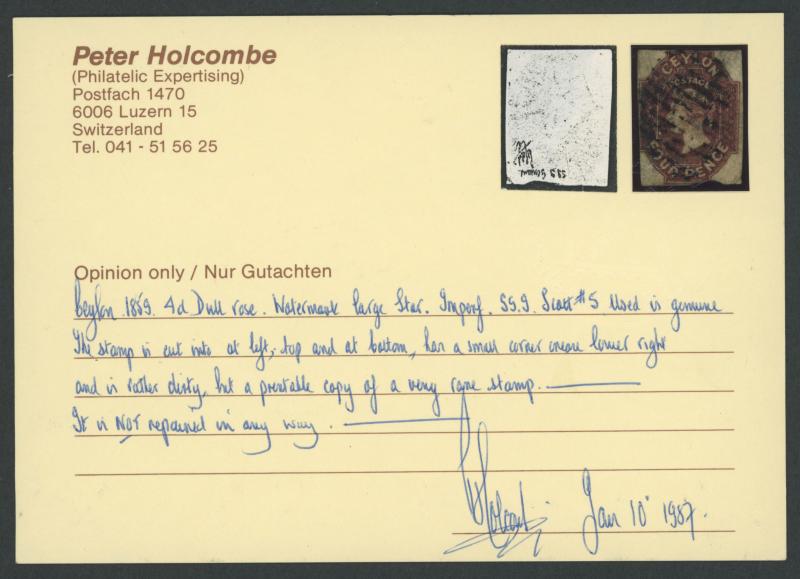 Peter Holcombe
(Philatelic Expertising)
Postfach 1470
6006 Luzern 15
Switzerland
Tel. 041 - 51 56 25
CEYLON
POSTAGE
FOUR PENCE
SG 5 Genuine
Opinion only / Nur Gutachten
Ceylon 1859. 4d Dull rose. Watermark large Star. Imperf. SG.5. Scott #5 Used is genuine
The stamp is cut into at left, top and at bottom, has a small corner crease lower right
and is rather dirty, but a presentable copy of a very rare stamp.
It is NOT repaired in any way.
Jan 10 1987.